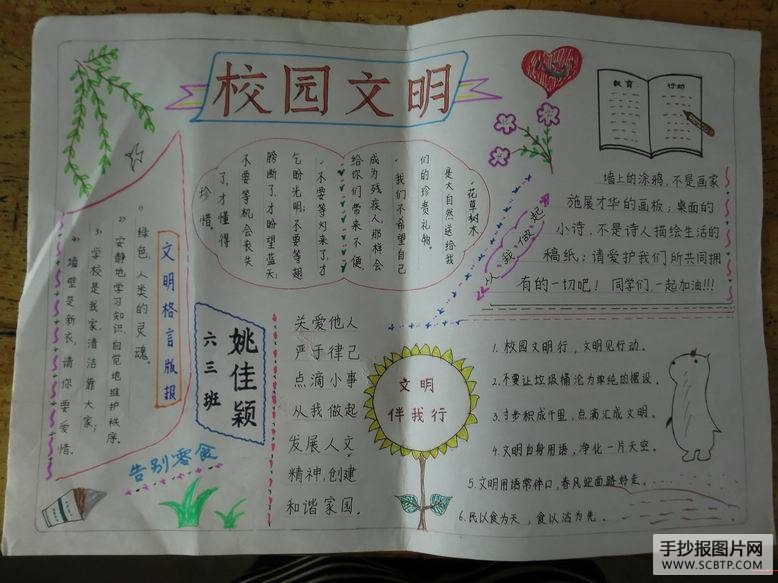 校园文明
教育
行动
墙上的涂鸦,不是画家
施展才华的画板;桌面的
小诗,不是诗人描绘生活的
稿纸;请爱护我们所共同拥
有的一切吧!同学们,一起加油!!!
从我做起
·花草树木
是大自然送给我
们的珍贵礼物。
·我们不希望自己
成为残疾人,那样会
给你们带来不便
·不要等灯来了,才
乞盼光明;不要等翅
膀断了,才盼望蓝天;
不要等机会丧失
了,才懂得
珍惜。
文明格言版报
绿色,人类的灵魂。
2)安静地学习知识,自觉地维护秩序。
3)学校是我家,清洁靠大家;
4)墙壁是新衣,请你要爱惜。
姚佳颖
六三班
告别零食
关爱他人
严于律己
点滴小事
从我做起
发展人文
精神,创建
和谐家园。
文明
伴我行
1.校园文明行,文明见行动。
2.不要让垃圾桶沦为单纯的摆设。
3.步积成千里,点滴汇成文明。
4.文明自身用语,净化一片天空。
5.文明用语常伴口,春风迎面路好走。
6.民以食为天,食以洁为先。
手抄报图片网
WWW.SCBTP.COM